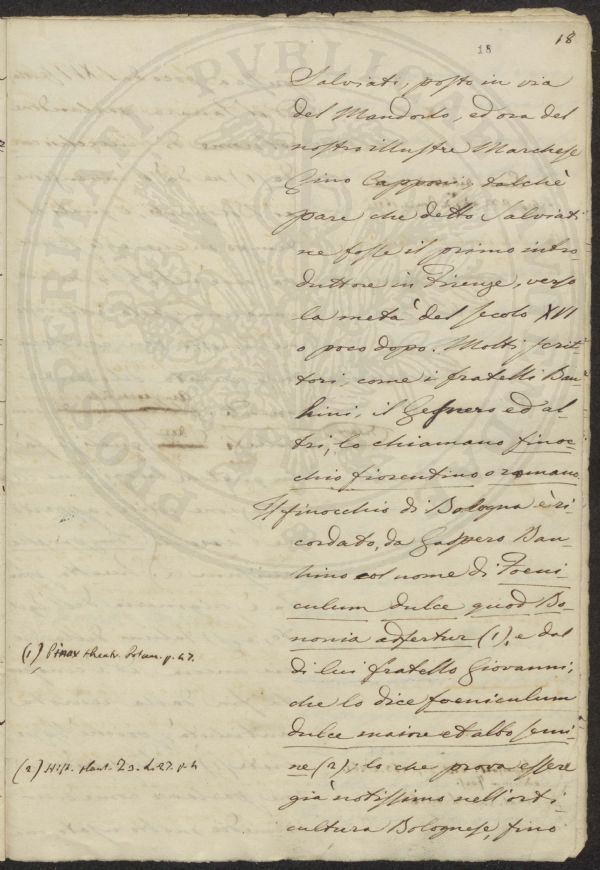 18
18
Salviati, posto in via
del Mandorlo, ed ora del
nostro illustre Marchese
Gino Capponi, talchè
pare che detto Salviati
ne fosse il primo intro
duttore in Firenze, verso
la metà del secolo XVI
o poco dopo. Molti scrit-
tori, come i fratelli Bau-
hini, il Gesnero ed al-
tri, lo chiamano finoc-
chio fiorentino o romano.
Il finocchio di Bologna è ri-
cordato, da Gaspero Bau-
hino col nome di Foeni-
culum dulce quod Bo-
nonia adfertur (1), e dal
di lui fratello Giovanni,
che lo dice foeniculum
dulce maiore et albo semi
ne (2), lo che prova essere
già notissimo nell'orti-
cultura Bolognese, fino
(1) Pinax theatr. Botan. p. 147.
(2) Hist. plant. T. 3. L. 27. p. 4
PROSPERITATI PVBLICAE